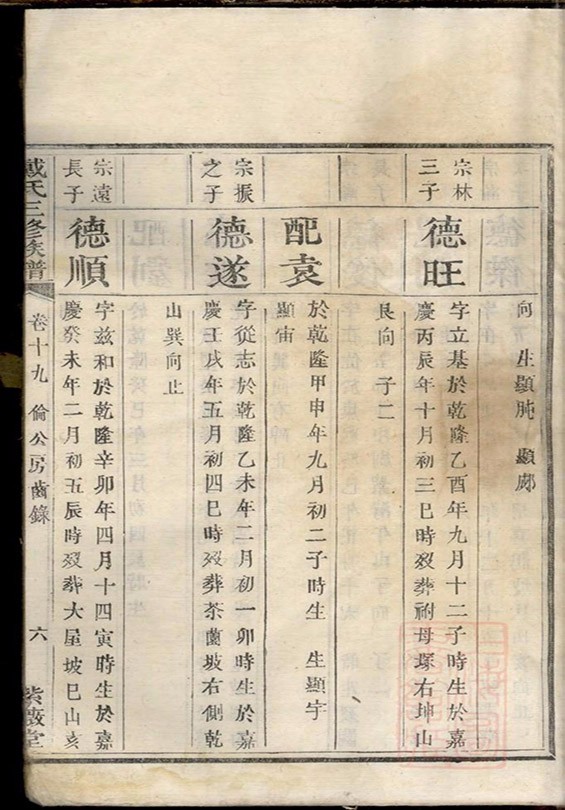 向　生顯肫　顯鄺
宗林三子
德旺
字立基於乾隆乙酉年九月十二子時生於嘉
慶丙辰年十月初三巳時歿葬祔母塚右坤山
艮向　子二
配袁
於乾隆甲申年九月初二子時生　生顯宇
顯宙
宗振之子
德遂
字從志於乾隆乙未年二月初一卯時生於嘉
慶壬戌年五月初四巳時歿葬茶蘭坡右側乾
山巽向止
宗遠長子
德順
字兹和於乾隆辛卯年四月十四寅時生於嘉
慶癸未年二月初五辰時歿葬大屋坡巳山亥
戴氏三修族譜　卷十九　倫公房齒錄　六　紫薇堂